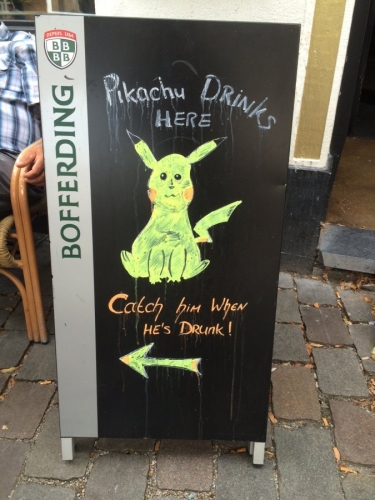 DEPUIS 1842
BB
BB
BOFFERDING
Pikachu DRINKS
HERE
Catch him When
HE'S DRUNK!